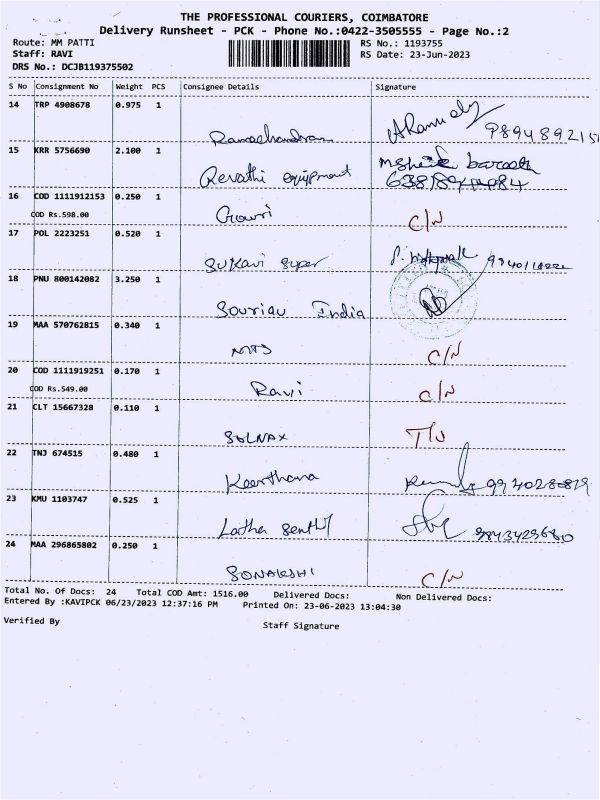 THE PROFESSIONAL COURIERS, COIMBATORE
Delivery Runsheet - PCK - Phone No.:0422-3505555 - Page No.:2
Route: MM PATTI
RS No.: 1193755
Staff: RAVI
RS Date: 23-Jun-2023
DRS No.: DCJB119375502
S No Consignment No Weight PCS Consignee Details Signature
14 TRP 4908678 0.975 1
Ramachandran
15 KRR 5756690 2.100 1
Revathi equipment
16 COD 1111912153 0.250 1
COD Rs.598.00 Gowri C/N
17 POL 2223251 0.520 1
Sukavi Super
18 PNU 800142082 3.250 1
Souriau India
19 MAA 570762815 0.340 1
MTS C/N
20 COD 1111919251 0.170 1
COD Rs.549.00 Ravi C/N
21 CLT 15667328 0.110 1
SOLNAX
22 TNJ 674515 0.480 1
Keerthana
23 KMU 1103747 0.525 1
Latha Senthil 9843429680
24 MAA 296865802 0.250 1
SONAKSHI C/N
Total No. Of Docs: 24 Total COD Amt: 1516.00 Delivered Docs: Non Delivered Docs:
Entered By :KAVIPCK 06/23/2023 12:37:16 PM Printed On: 23-06-2023 13:04:30
Verified By
Staff Signature